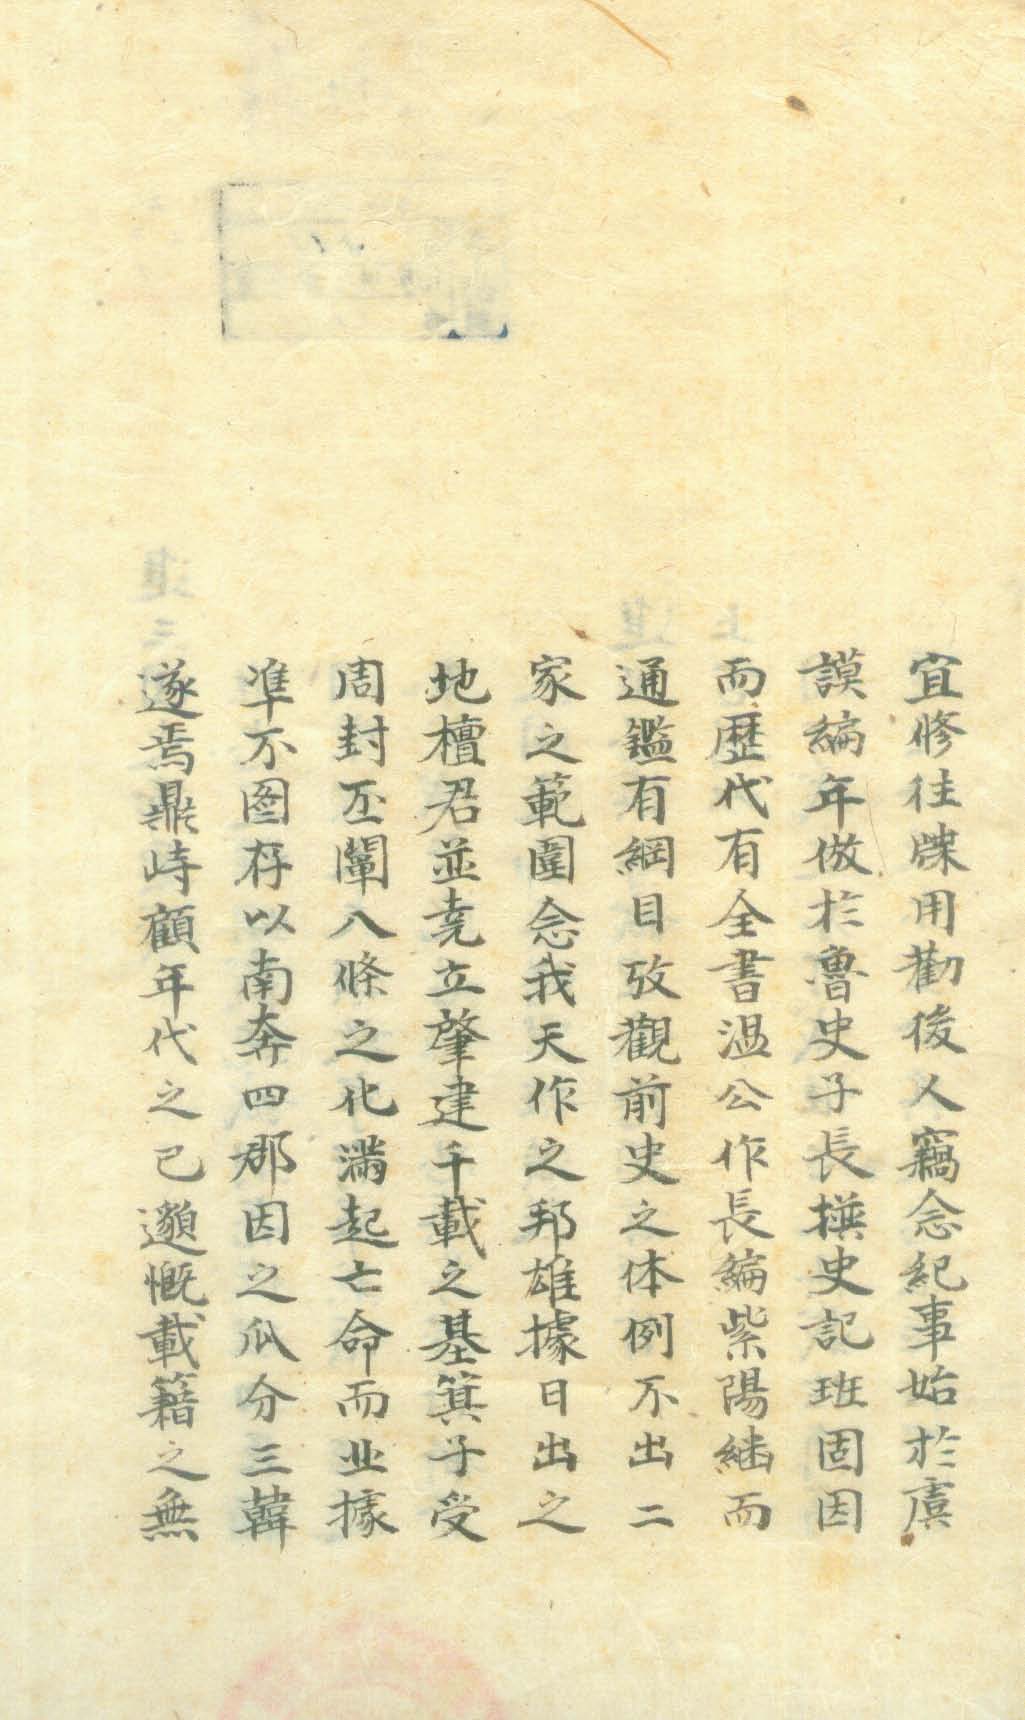 宜修徃牒用勸後人竊念紀事始於虞
謨編年倣於魯史子長撰史記班固因
而歷代有全書温公作長編紫陽継而
通鑑有綱目攷觀前史之体例不出二
家之範圍念我天作之邦雄據日出之
地檀君並堯立肇建千載之基箕子受
周封丕闡八條之化滿起亡命而北據
準不圖存以南奔四郡因之瓜分三韓
遂焉鼎峙顧年代之已邈慨載籍之無